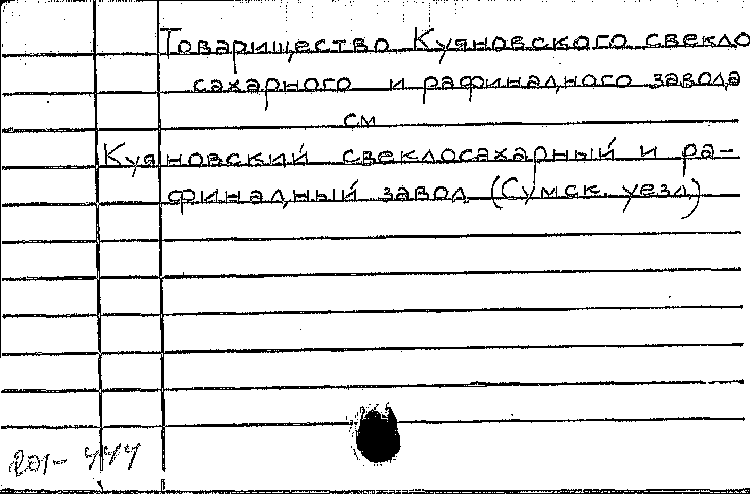 Товарищество Куяновского свекло
сахарного и рафинадного завода
см
Куяновский свеклосахарный и ра-
финадный завод (Сумск. уезд)
201-444